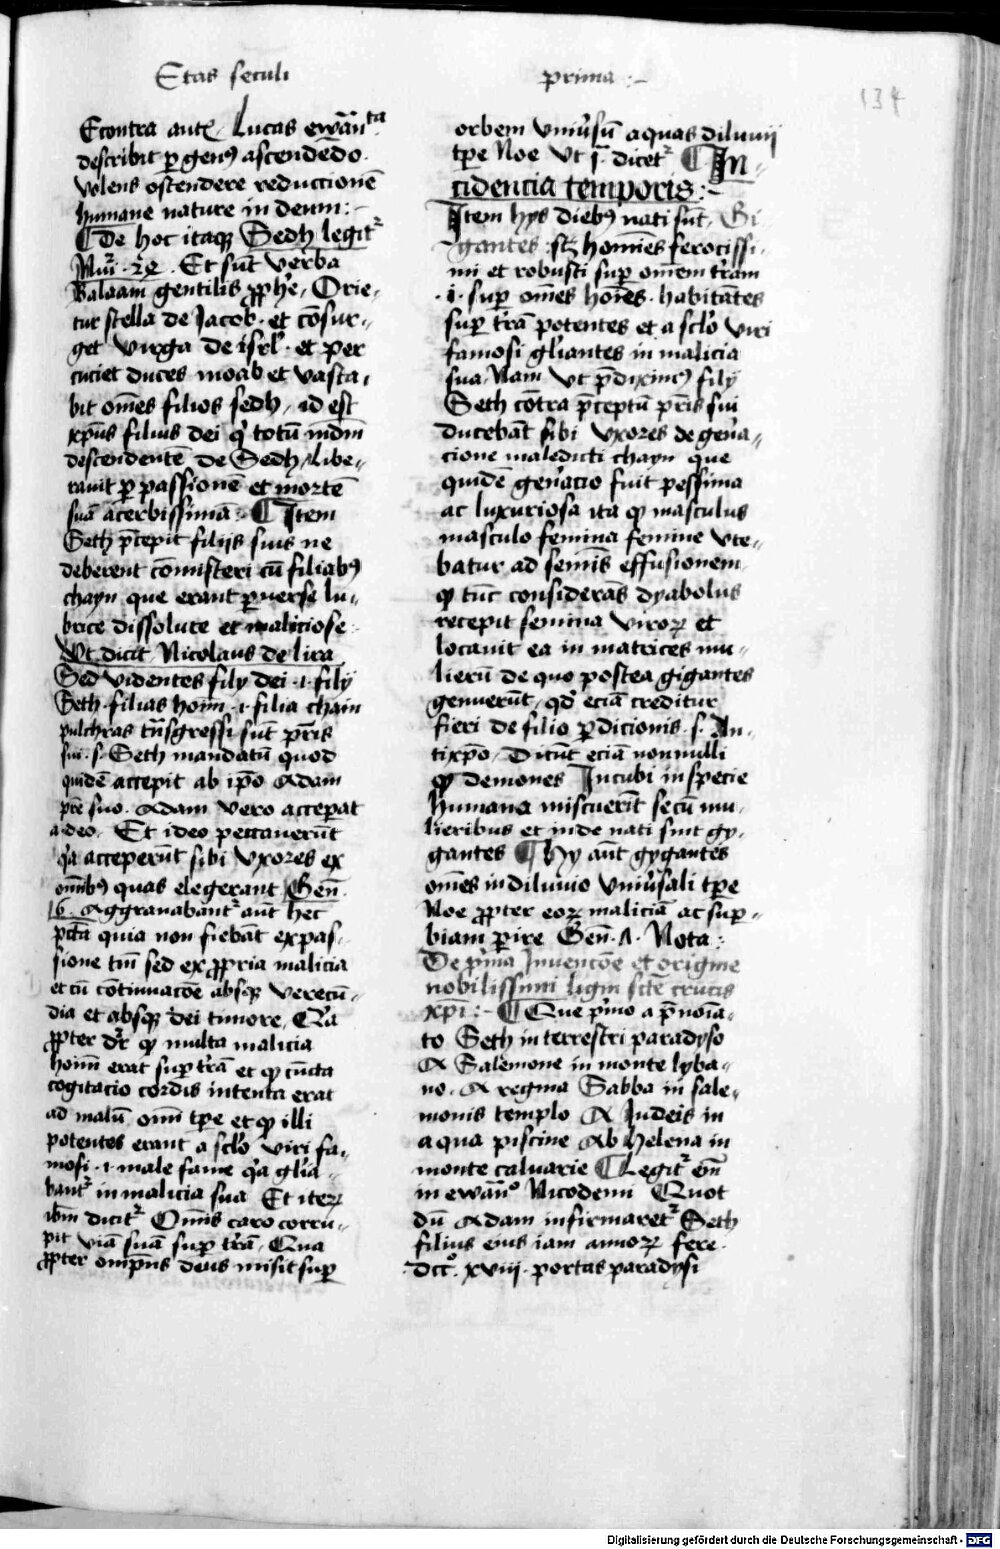 Etas seculi prima :-
134
Econtra aut̄ Lucas ewāṅta
describit ꝑ genꝰ ascendēdo .
volens ostendere reduccionē
humane nature in deum :-
¶ De hoc itaqꝫ Sedh legitᷣ
Nui᷑ . 24 . Et sūt verba
Balaam gentilis ꝓphe , Orie-
tur stella de Jacob . et cōsur-
get virga de isrl̓ . et per
cuciet duces moab et vasta-
bit om̄es filios sedh , id est
xp̄us filius dei qͥ totū mūdū
descendentē de Sedh / libe-
rauit ꝑ passionē et mortē
suā acerbissimā :- ¶ Item
Seth p̄cepit filijs suis ne
deberent cōmisceri cū filiabꝰ
chayn que erant ꝑuerse lu-
brice dissolute et maliciose
Vt dicit Nicolaus de lira
Sed videntes filij dei .i. filij
Seth . filias hoīm .i. filia chain
pulchras tn̄sgressi sūt pr̄is
sui .s. Seth mandatū quod
quidē accepit ab ip̄o Adam
pr̄e suo . Adam vero acceperat
a deo . Et ideo peccauerūt
qͥa acceperūt sibi vxores ex
om̄ibꝰ quas elegerant Gen̄ .
6 . Aggrauabantᷣ aūt hec
pc̄ta quia non fiebāt ex pas-
sione tm̄ sed ex ꝓpria malicia
et cū cōtinuacōe absqꝫ verecū-
dia et absqꝫ dei timore , Qͥa
ꝓpter dr̄ ꝙ multa malicia
hoīm erat suꝑ t̓rā et ꝙ cūcta
cogitacio cordis intenta erat
ad malū om̄i tp̄e et ꝙ illi
potentes erant a scl̓o viri fa-
mosi .i. male fame qͥa gl̓ia-
bantᷣ in malicia sua Et iteꝝ
ibm̄ dicitᷣ Om̄is caro corru-
pit viā suā suꝑ t̓rā , Qua
ꝓpter om̄ps deus misit suꝑ
orbem vniu̓sū aquas diluuij
tp̄e Noe vt j̄ . dicetᷣ ¶ In-
cidencia temporis :-
Item hys diebꝰ nati sūt Gi-
gantes scꝫ homīes ferocissi-
mi et robusti suꝑ om̄em t̓ram
.i. suꝑ om̄es hoīes . habitātes
suꝑ t̓rā potentes et a scl̓o viri
famosi gl̓iantes in malicia
sua , Nam vt p̄diximꝰ filij
Seth cōtra p̄ceptū pr̄is sui
ducebāt sibi vxores de gen̓a-
cione maledicti chayn que
quidē gen̓acio fuit pessima
ac luxuriosa ita ꝙ masculus
masculo femina femine vte-
batur ad semīs effusionem
ꝙ tūc considerās dyabolus
recepit semina viroꝝ et
locauit ea in matrices mu-
lierū de quo postea gigantes
genuerūt , qd̓ eciā creditur
fieri de filio ꝑdicionis .s. An-
tixp̄o , Dicūt eciā nonnulli
ꝙ demones Incubi in specie
humana miscuerīt se cū mu-
lieribus et inde nati sint gy-
gantes ¶ Hy aūt gygantes
om̄es in diluuio vniu̓sali tp̄e
Noe ꝓpter eoꝝ maliciā ac suꝑ-
biam ꝑire Gen̄ . Nota :-
De pͥma Inuencōe et origine
nobilissimi ligni scē crucis
xp̄i :- ¶ Que pͥmo a p̄noīa-
to Seth in terrestri paradyso
A Salemone in monte lyba-
no . A regina Sabba in sale-
monis templo A Judeis in
aqua piscine Ab Helena in
monte caluarie ¶ Legitᷣ em̄
in ewāṅo Nicodemi Quot
dū Adam infirmaretᷣ Seth
filius eius iam annoꝝ fere .
dcco . xviij . portas paradysi
Digitalisierung gefördert durch die Deutsche Forschungsgemeinschaft - DFG